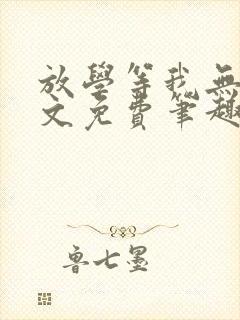 放學等我無
文免費筆趣
魯七墨